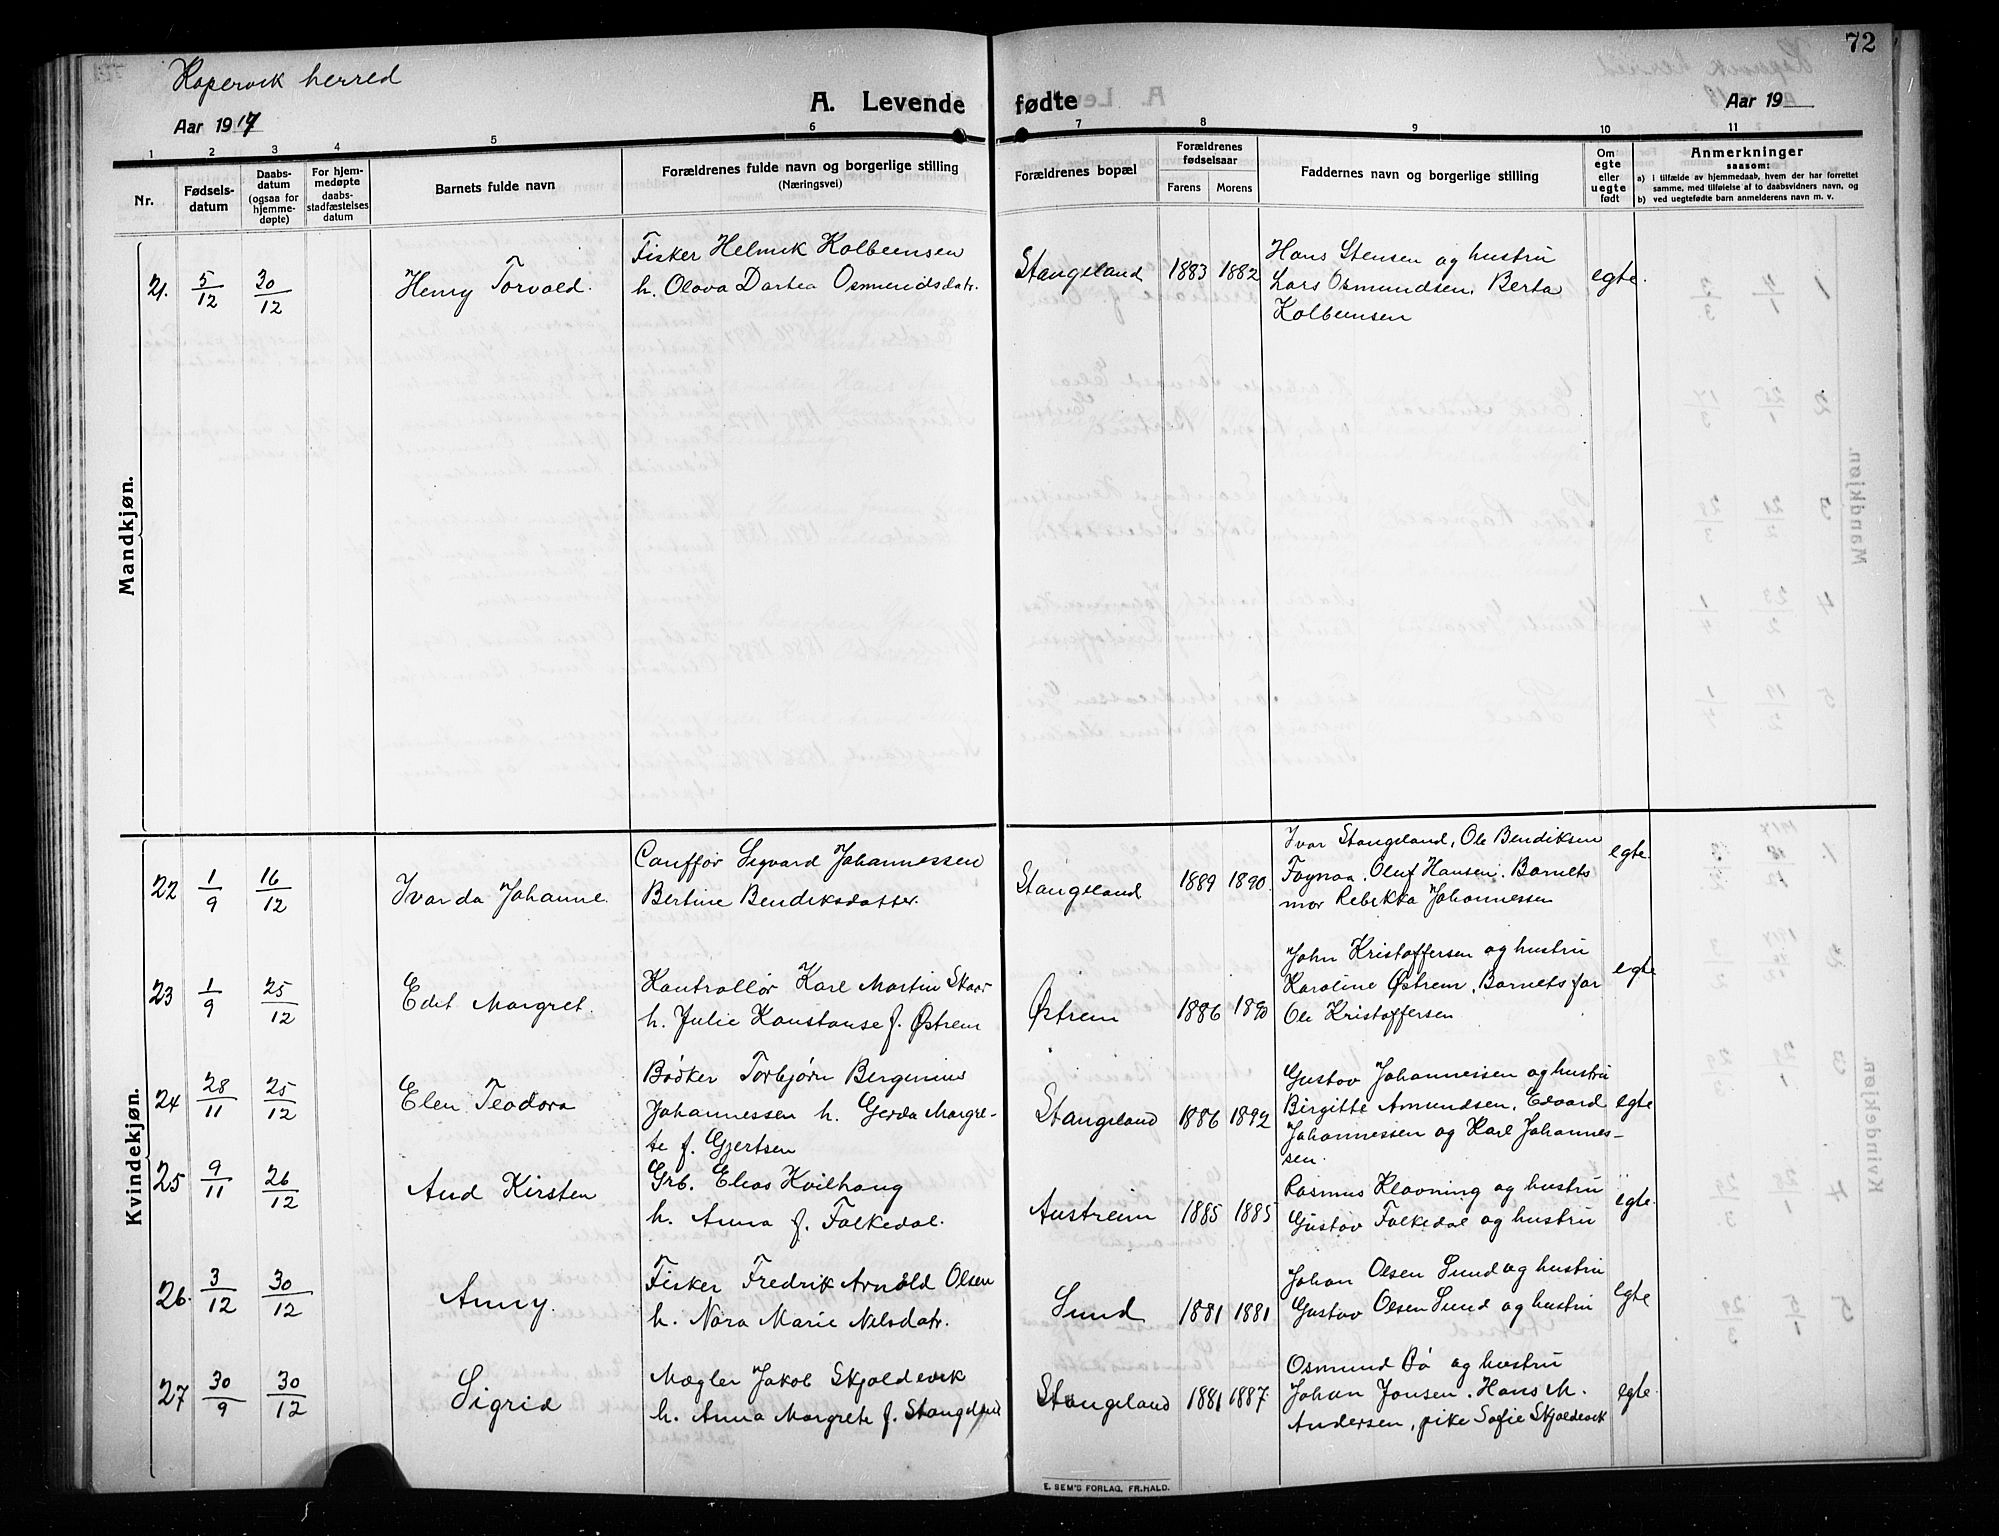 72
Kopervik herred
A. Levende fødte
Aar 1917
Aar 19
1 2 3 4 5 6 7 8 9 10 11
Nr.
Fødsels-
datum
Daabs-
datum
(ogsaa for
hjemme-
døpte)
For hjem-
medøpte
daabs-
stadfæstelses
datum
Barnets fulde navn
Forældrenes fulde navn og borgerlige stilling
(Næringsvei)
Forældrenes bopæl
Forældrenes
fødselsaar
Farens
Morens
Faddernes navn og borgerlige stilling
Om
egte
eller
uegte
født
Anmerkninger
saasom:
a) i tilfælde av hjemmedaab, hvem der har forrettet
samme, med tilføielse af to daabsvidners navn, og
b) ved uegtefødte barn anmelderens navn m. v.
Mandkjøn.
21. 5/12 30/12 Henry Torvald.
Fisker Helmik Kolbeensen
h. Olava Dortea Osmundsdatr.
Stangeland 1883 1882
Hans Stensen og hustru
Lars Osmundsen, Berta
Kolbeensen
egte.
Kvindekjøn.
22 1/9 16/12 Ivarda Johanne.
Cauffør Sigvard Johannessen
Bertine Bendiksdatter.
Stangeland 1889 1890.
Ivar Stangeland, Ole Bendiksen
Fognaa, Oluf Hansen. Barnets
mor Rebekka Johannessen
egte.
23 1/9 25/12 Edit Margret.
Kontrollør Karl Martin Skaar
h. Julie Konstanse f. Østrem
Østrem 1886 1890
John Kristoffersen og hustru
Karoline Østrem, Barnets far
Ole Kristoffersen
egte
24 28/11 25/12 Elen Teodora
Bødker Torbjørn Bergenius
Johannessen h. Gerda Margre-
te f. Gjertsen
Stangeland 1886 1892
Gustav Johannessen og hustru
Birgitte Amundsen, Edvard
Johannessen og Karl Johannes-
sen.
egte
25 9/11 26/12 Aud Kirsten
Grb. Elias Kvilhaug
h. Anna f. Falkedal.
Austreim 1885 1885
Rasmus Klovning og hustru
Gustav Falkedal og hustru
egte.
26. 3/12 30/12 Anny.
Fisker Fredrik Arnold Olsen
h. Nora Marie Nilsdatr.
Sund 1881 1881
Johan Olsen Sund og hustru
Gustav Olsen Sund og hustru
egte
27 30/9 30/12 Sigrid
Mægler Jakob Skjoldevik
h. Anna Margrete f. Stangeland
Stangeland 1881 1887.
Osmund Bø og hustru
Johan Jonsen. Hans M.
Andersen, pike Sofie Skjoldevik
egte.
E. SEM'S FORLAG, FR.HALD.